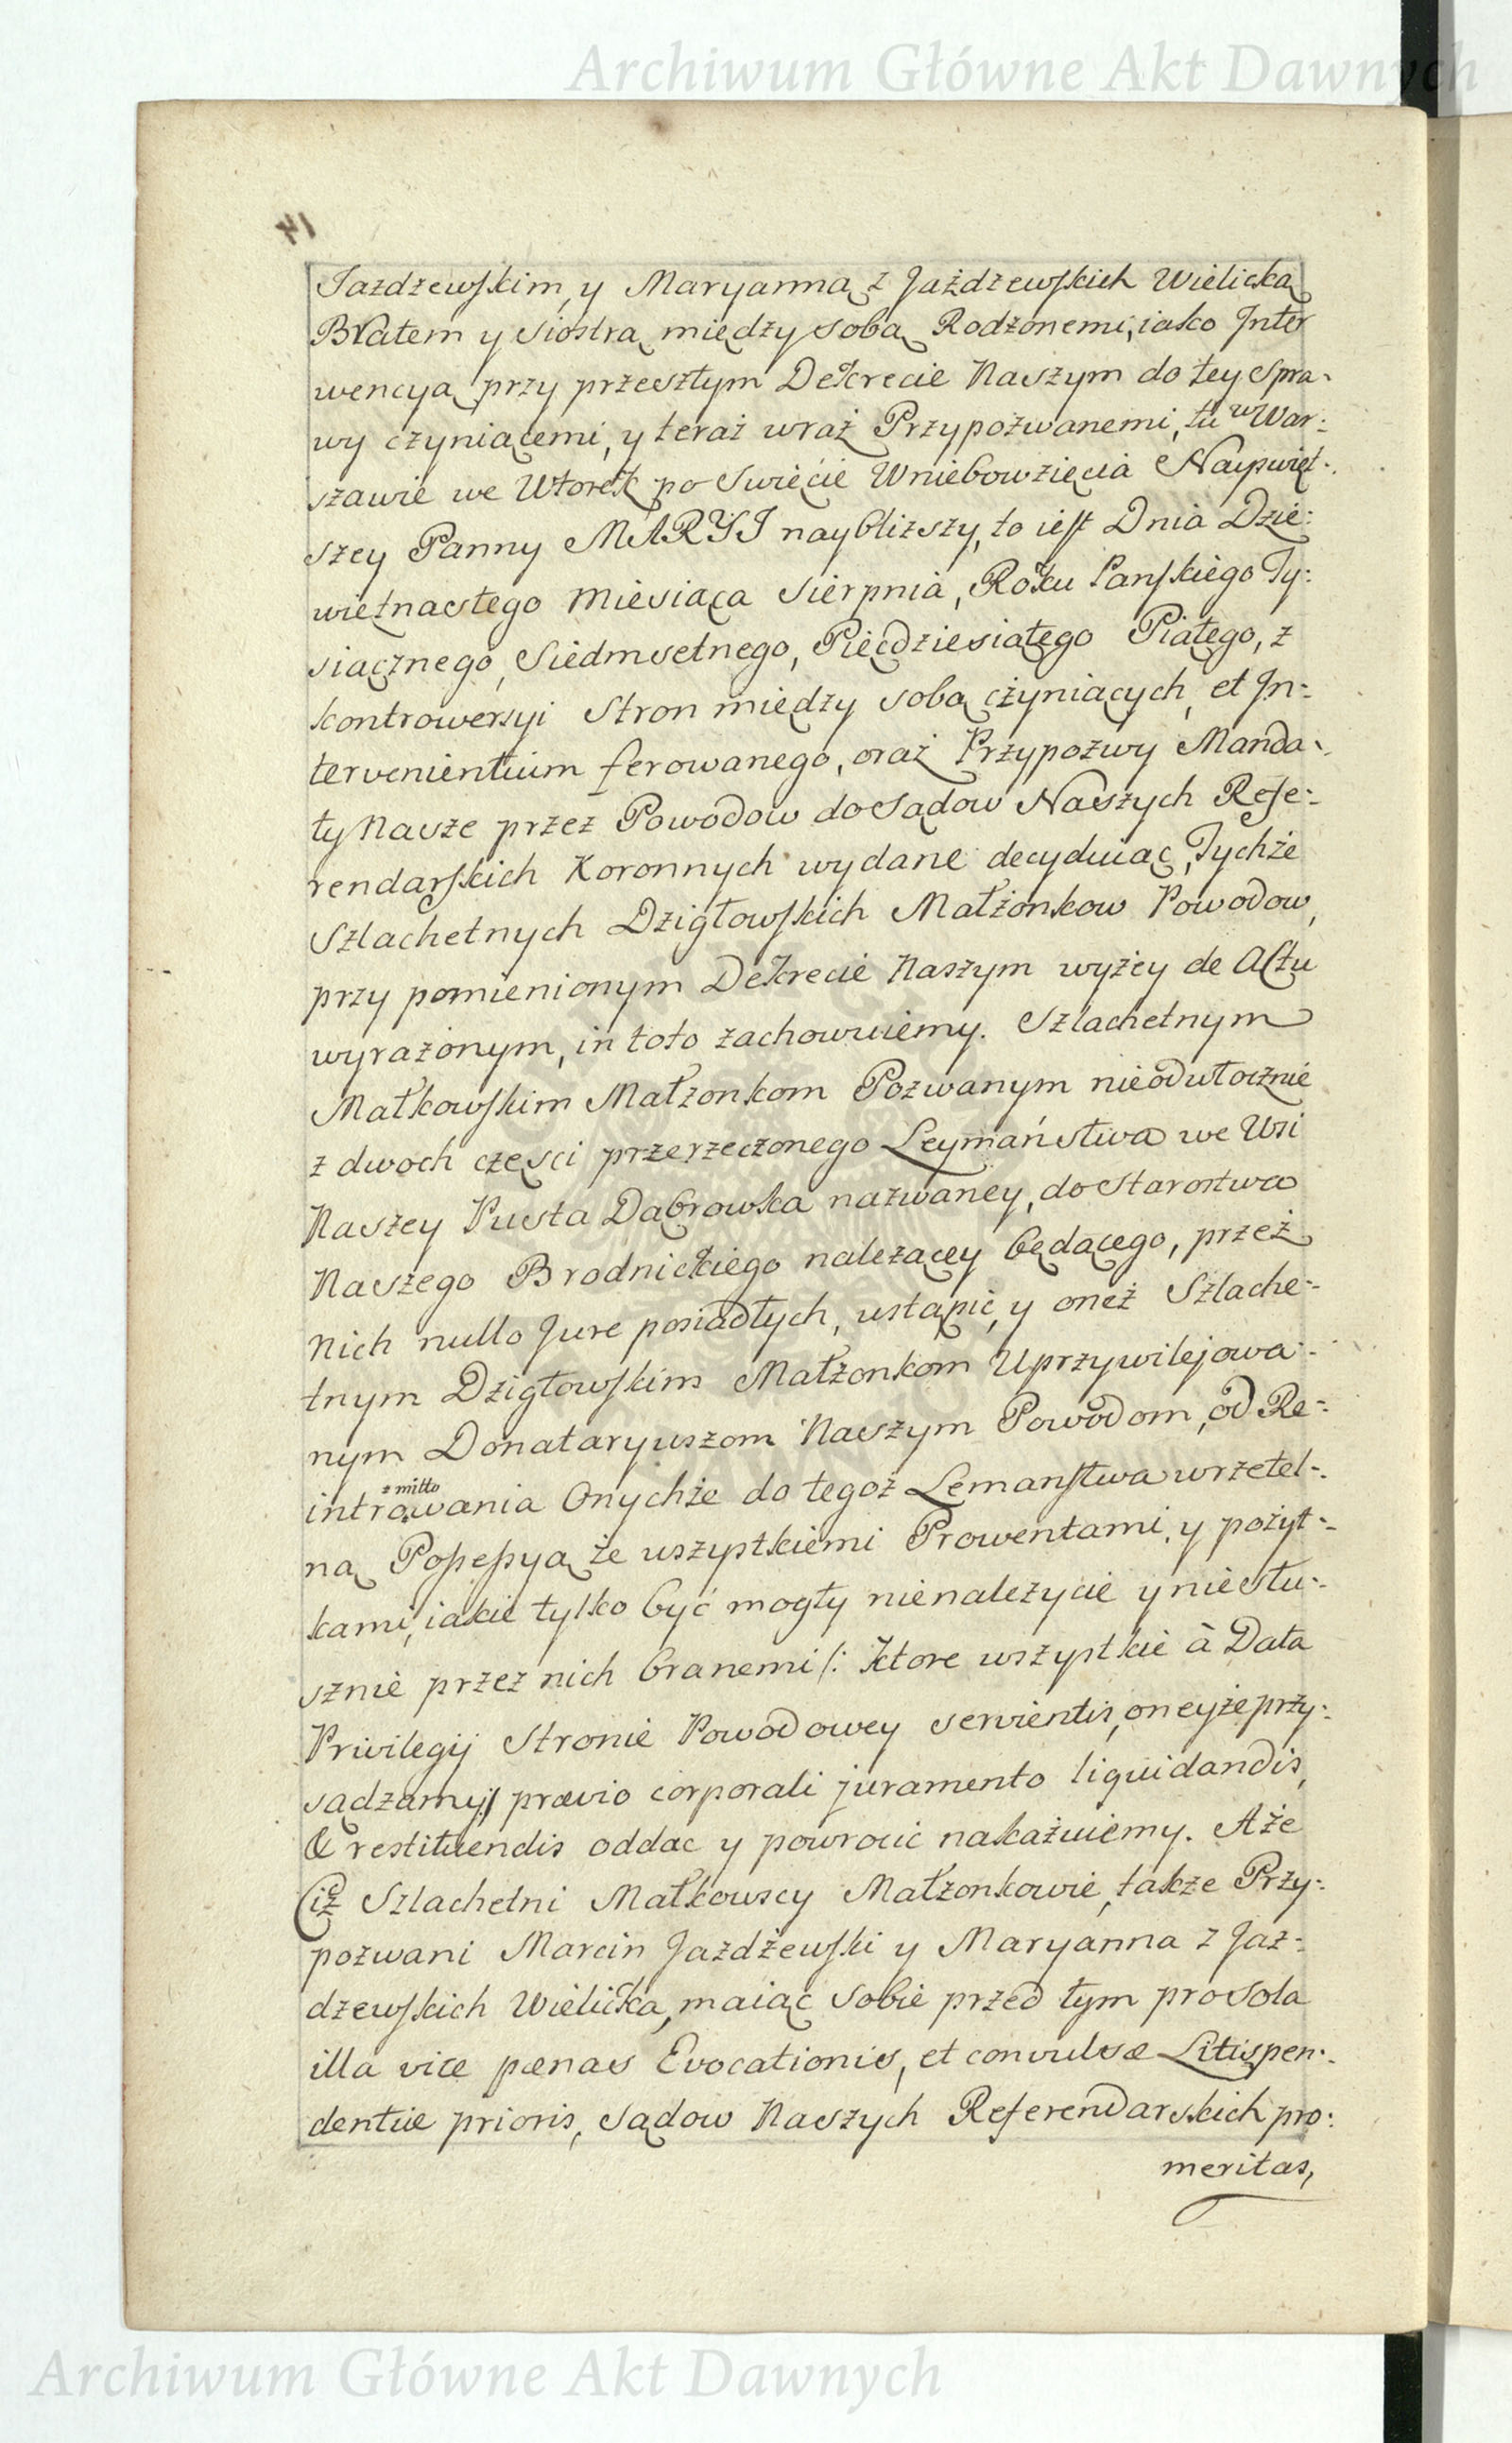 Archiwum Główne Akt Dawnych
14
Jazdzewskim, y Maryanną z Jażdzewskich Wielicką
Bratem y siostrą między sobą Rodzonemi, iako Inter
wencyą przy przeszłym Dekrecie Naszym do tey Spra-
wy czyniącemi, y teraz wraz Przypozwanemi, tu w War:
szawie we Wtorek po Swięcie Wniebowzięcia Nayswięt:
szey Panny MARYI naybliższy, to iest Dnia Dzie:
więtnastego Miesiąca Sierpnia, Roku Panskiego Ty:
siącznego, Siedmsetnego, Pięcdziesiątego Piątego, z
kontrowersyi Stron między sobą czyniących, et In:
tervenientium ferowanego, oraz Przypozwy Manda:
ty Nasze przez Powodow do Sądow Naszych Refe:
rendarskich Koronnych wydane decyduiąc, Tychże
Szlachetnych Dzigłowskich Małżonkow Powodow,
przy pomienionym Dekrecie Naszym wyżey de Actu
wyrażonym, in toto zachowuiemy. Szlachetnym
Małkowskim Małzonkom Pozwanym nieodwłocznie
z dwoch częsci przerzeczonego Leymaństwa we Wsi
Naszey Pusta Dąbrowka nazwaney, do Starostwa
Naszego Brodnickiego należącey będącego, przez
Nich nullo Jure posiadłych, ustąpić, y oneż Szlache:
tnym Dzigłowskim Małżonkom Uprzywilejowa:
nym Donataryuszom Naszym Powodom, od Re:
z mitto
introwania Onychże do tegoż Lemanstwa w rzetel:
ną Possessyą ze wszystkiemi Prowentami, y pożyt:
kami, iakie tylko być mogły nienależycie y niesłu:
sznie przez nich branemi /: ktore wszystkie à Data
Privilegij Stronie Powodowey servientis, oneyże przy:
sądzamy :/ prævio corporali juramento liquidandis,
& restituendis oddac y powrocic nakażuiemy. A że
Ciż Szlachetni Małkowscy Małżonkowie, takze Przy:
pozwani Marcin Jazdżewski y Maryanna z Jaz:
dzewskich Wielicka, maiąc sobie przed tym pro sola
illa vice pænas Evocationis, et convulsæ Litispen:
dentiæ prioris, Sądow Naszych Referendarskich pro:
meritas,
Archiwum Główne Akt Dawnych